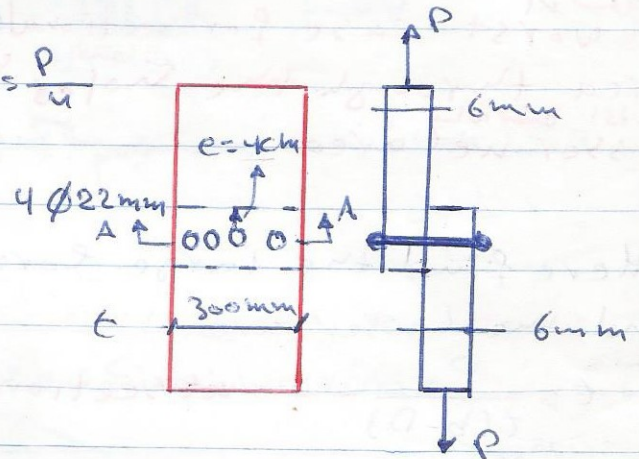 P
= P/4
6mm
e=4cm
4 Ø22mm
A
A
300mm
t
6mm
P